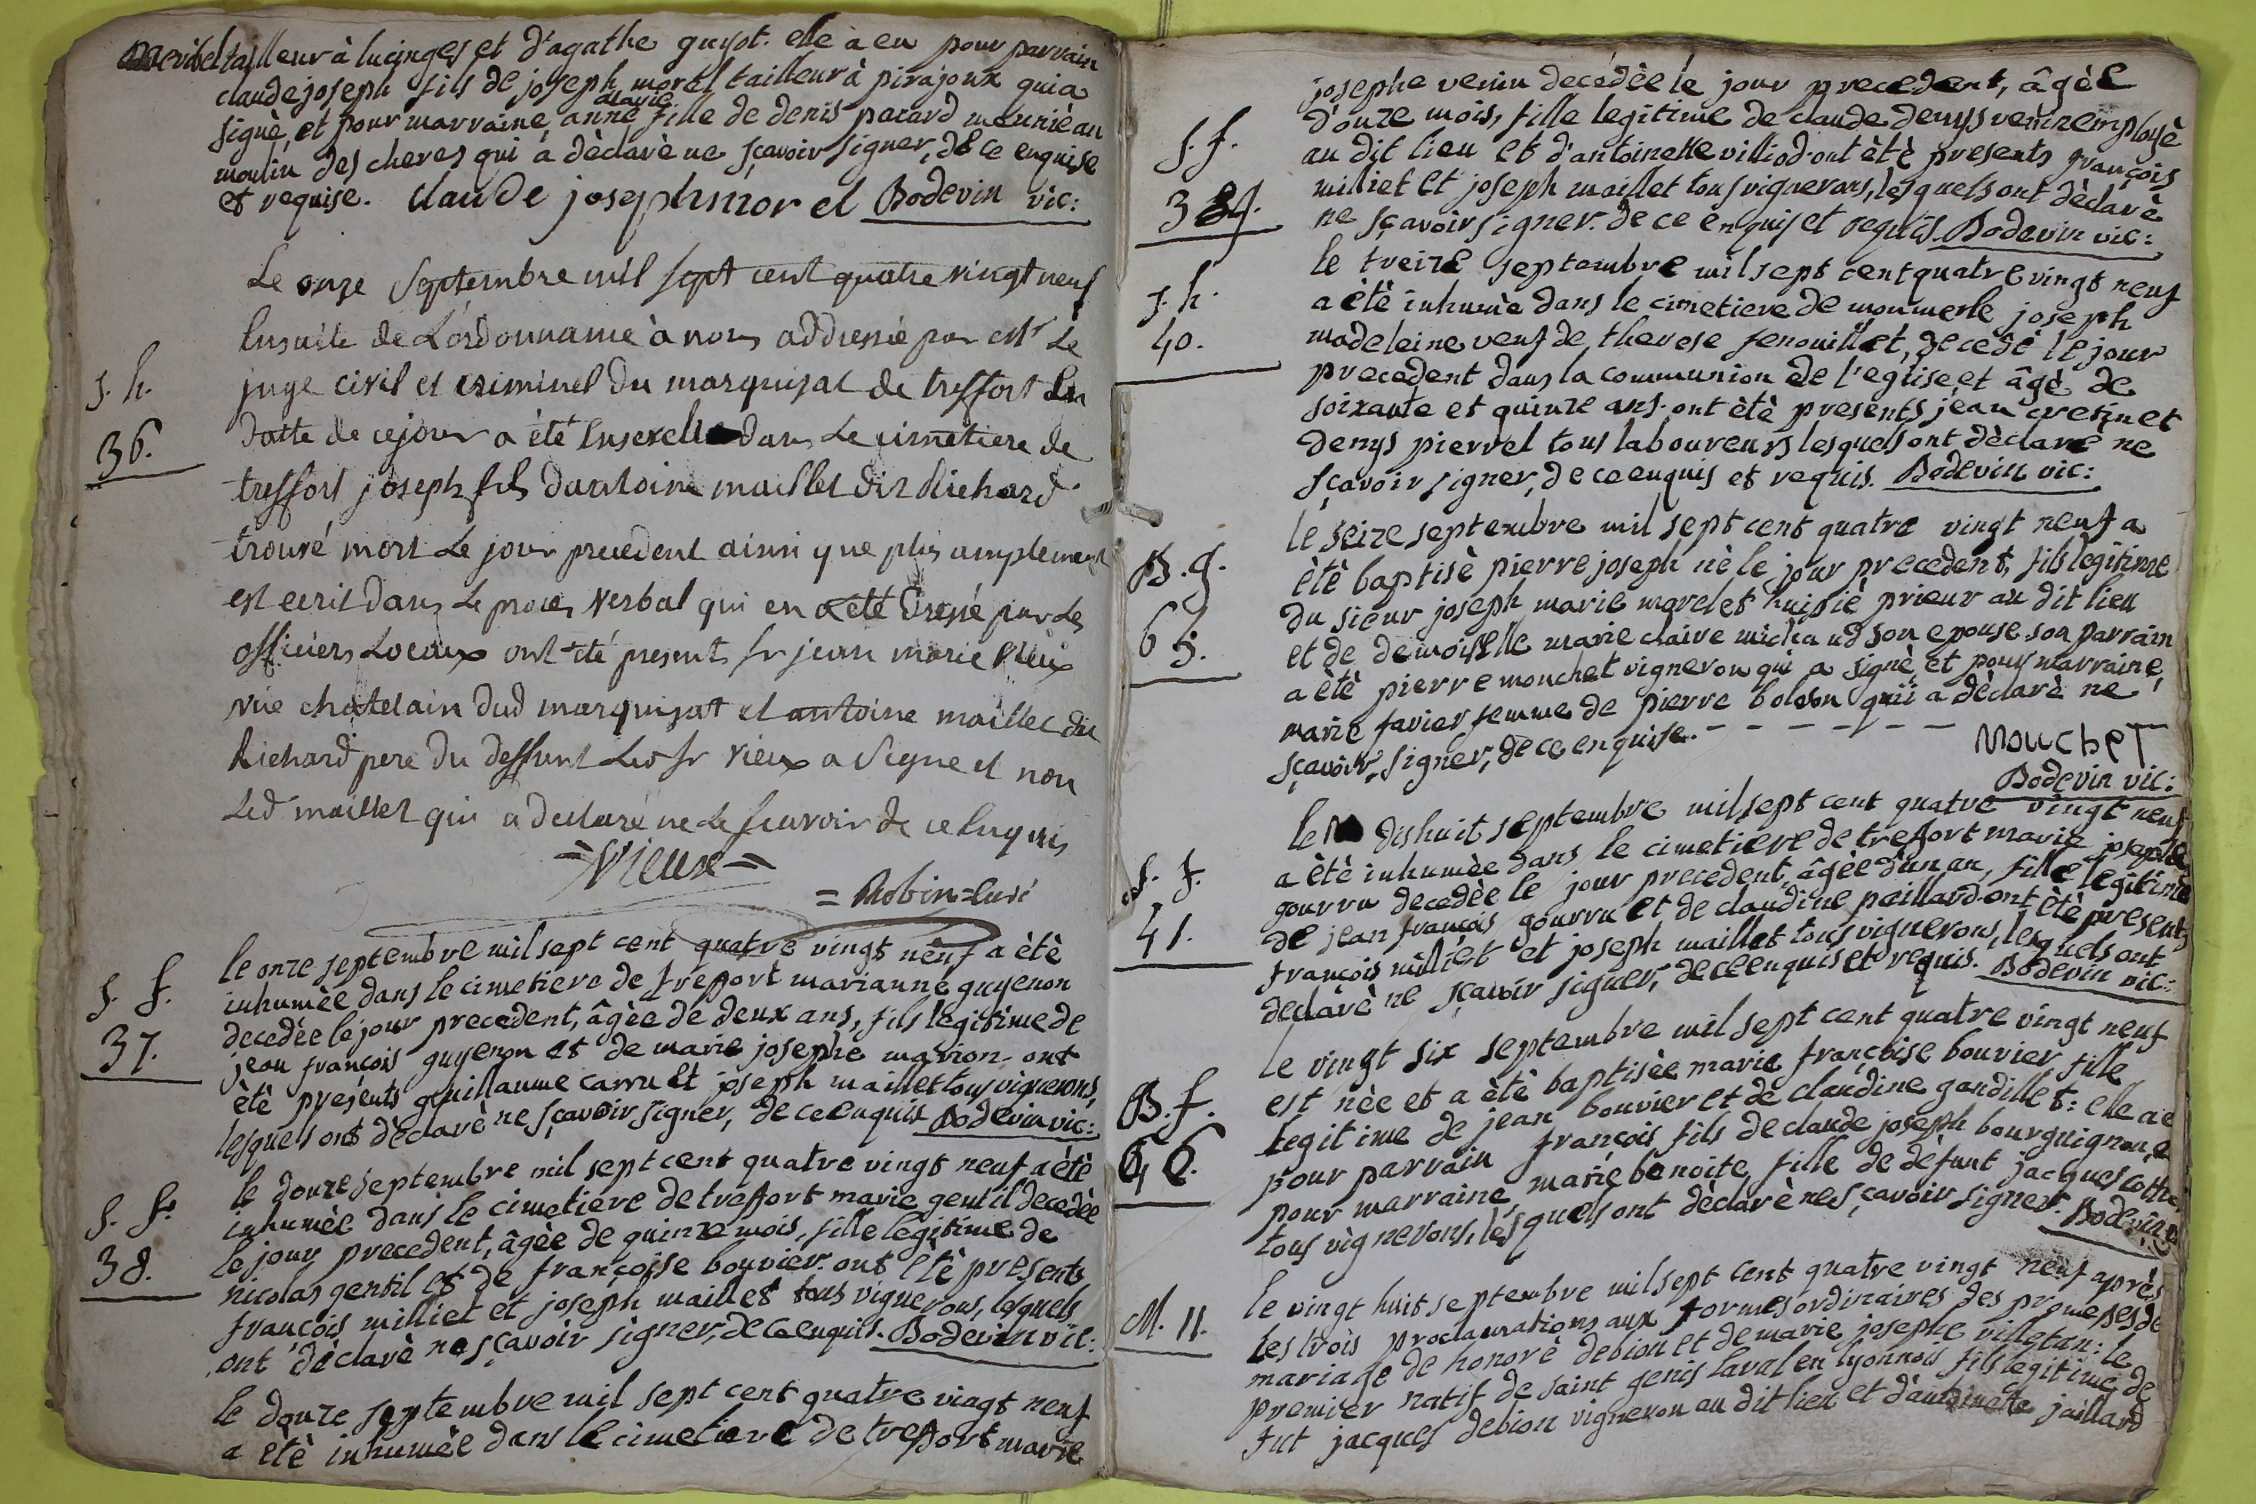 tailleur à lucinges et d'agathe guyot. elle à eu pour parrain
claude joseph fils de joseph morel tailleur à pirajoux qui a
signè, et pour marraine anne marie fille de denis pacard meuniè au
moulin des cheres qui à dèclarè ne sçavoir signer, de ce enquise
et requise. claude joseph morel Bodevin vic:
Le onze Septembre mil sept cent quatre vingt neuf
Ensuite de L'ordonnance à nous addressé par Mr Le
s. h.
juge civil et criminel du marquisat de treffort En
36.
datte de ce jour a été Enseveli dans Le cimetiere de
treffort joseph fils d'antoine maillet dit Richard
trouvé mort Le jour precedent ainsi que plus amplement
est ecrit dans Le proces verbal qui en a eté dressé par Les
officiers Locaux ont été presents sr jean marie vieux
vice chatelain dud marquisat et antoine maillet dit
Richard pere du deffunt Led sr vieux a signe et non
Led maillet qui a declaré ne Le scavoir de ce Enquis
= Vieux =
= Robin = curé
le onze septembre mil sept cent quatre vingt neuf a ètè
s. f.
inhumèe dans le cimetiere de treffort marianne guyenon
decedèe le jour precedent, âgèe de deux ans, fils legitime de
37.
jean françois guyenon et de marie josephe marion. ont
ètè presents guillaume carru et joseph maillet tous vignerons,
lesquels ont dèclarè ne sçavoir signer, de ce enquis Bodevin vic:
le douze septembre mil sept cent quatre vingt neuf a ètè
s. f.
inhumèe dans le cimetiere de treffort marie gentil decedèe
le jour precedent, âgèe de quinze mois, fille legitime de
38.
nicolas gentil et de françoise bouvier. ont ètè presents
françois milliet et joseph maillet tous vignerons, lesquels
ont dèclarè ne sçavoir signer, de ce enquis. Bodevin vic:
le douze septembre mil sept cent quatre vingt neuf
a ètè inhumèe dans le cimetiere de treffort marie
josephe venin decédèe le jour precedent, âgèe
s. f.
d'onze mois, fille legitime de claude denys venin employè
au dit lieu et d'antoinette villiod. ont ètè presents françois
39.
milliet et joseph maillet tous vignerons, lesquels ont dèclarè
ne sçavoir signer. de ce enquis et requis. Bodevin vic:
le treize septembre mil sept cent quatre vingt neuf
s. h.
a ètè inhumèe dans le cimetiere de montmerle joseph
40.
madeleine veuf de therese fenouillet, decedè le jour
precedent dans la communion de l'eglise et âgè de
soixante et quinze ans. ont ètè presents jean cresin et
denys pierrel tous laboureurs lesquels ont dèclarè ne
sçavoir signer, de ce enquis et requis. Bodevin vic:
le seize septembre mil sept cent quatre vingt neuf a
B. g.
ètè baptisè pierre joseph nè le jour precedent, fils legitime
du sieur joseph marie morelet huissiè prieur au dit lieu
65.
et de demoiselle marie claire michaud son epouse. son parrain
a ètè pierre mouchet vigneron qui a signè, et pour marraine
marie favier femme de pierre bolson qui a dèclarè ne
sçavoir signer, de ce enquise.
Mouchet
Bodevin vic:
le dishuit septembre mil sept cent quatre vingt neuf
s. f.
a ètè inhumèe dans le cimetiere de treffort marie josephe
gourru decedèe le jour precedent, âgèe d'un an, fille legitime
41.
de jean françois gourru et de claudine paillard. ont ètè presents
françois milliet et joseph maillet tous vignerons, lesquels ont
declarè ne sçavoir signer, de ce enquis et requis. Bodevin vic:
le vingt six septembre mil sept cent quatre vingt neuf
est nèe et a ètè baptisèe marie françoise bouvier fille
B. f.
legitime de jean bouvier et de claudine gandillet: elle a eu
66.
pour parrain françois fils de claude joseph bourguignon, et
pour marraine marie benoite fille de dèfunt jacques
tous vignerons, lesquels ont dèclarè ne sçavoir signer. Bodevin
le vingt huit septembre mil sept cent quatre vingt neuf après
M. 11.
les trois proclamations aux formes ordinaires des promesses de
mariage de honorè debion et de marie josephe villetan: le
premier natif de saint genis laval en lyonnois fils legitime de
fut jacques debion vigneron au dit lieu et d'antoinette jaillard